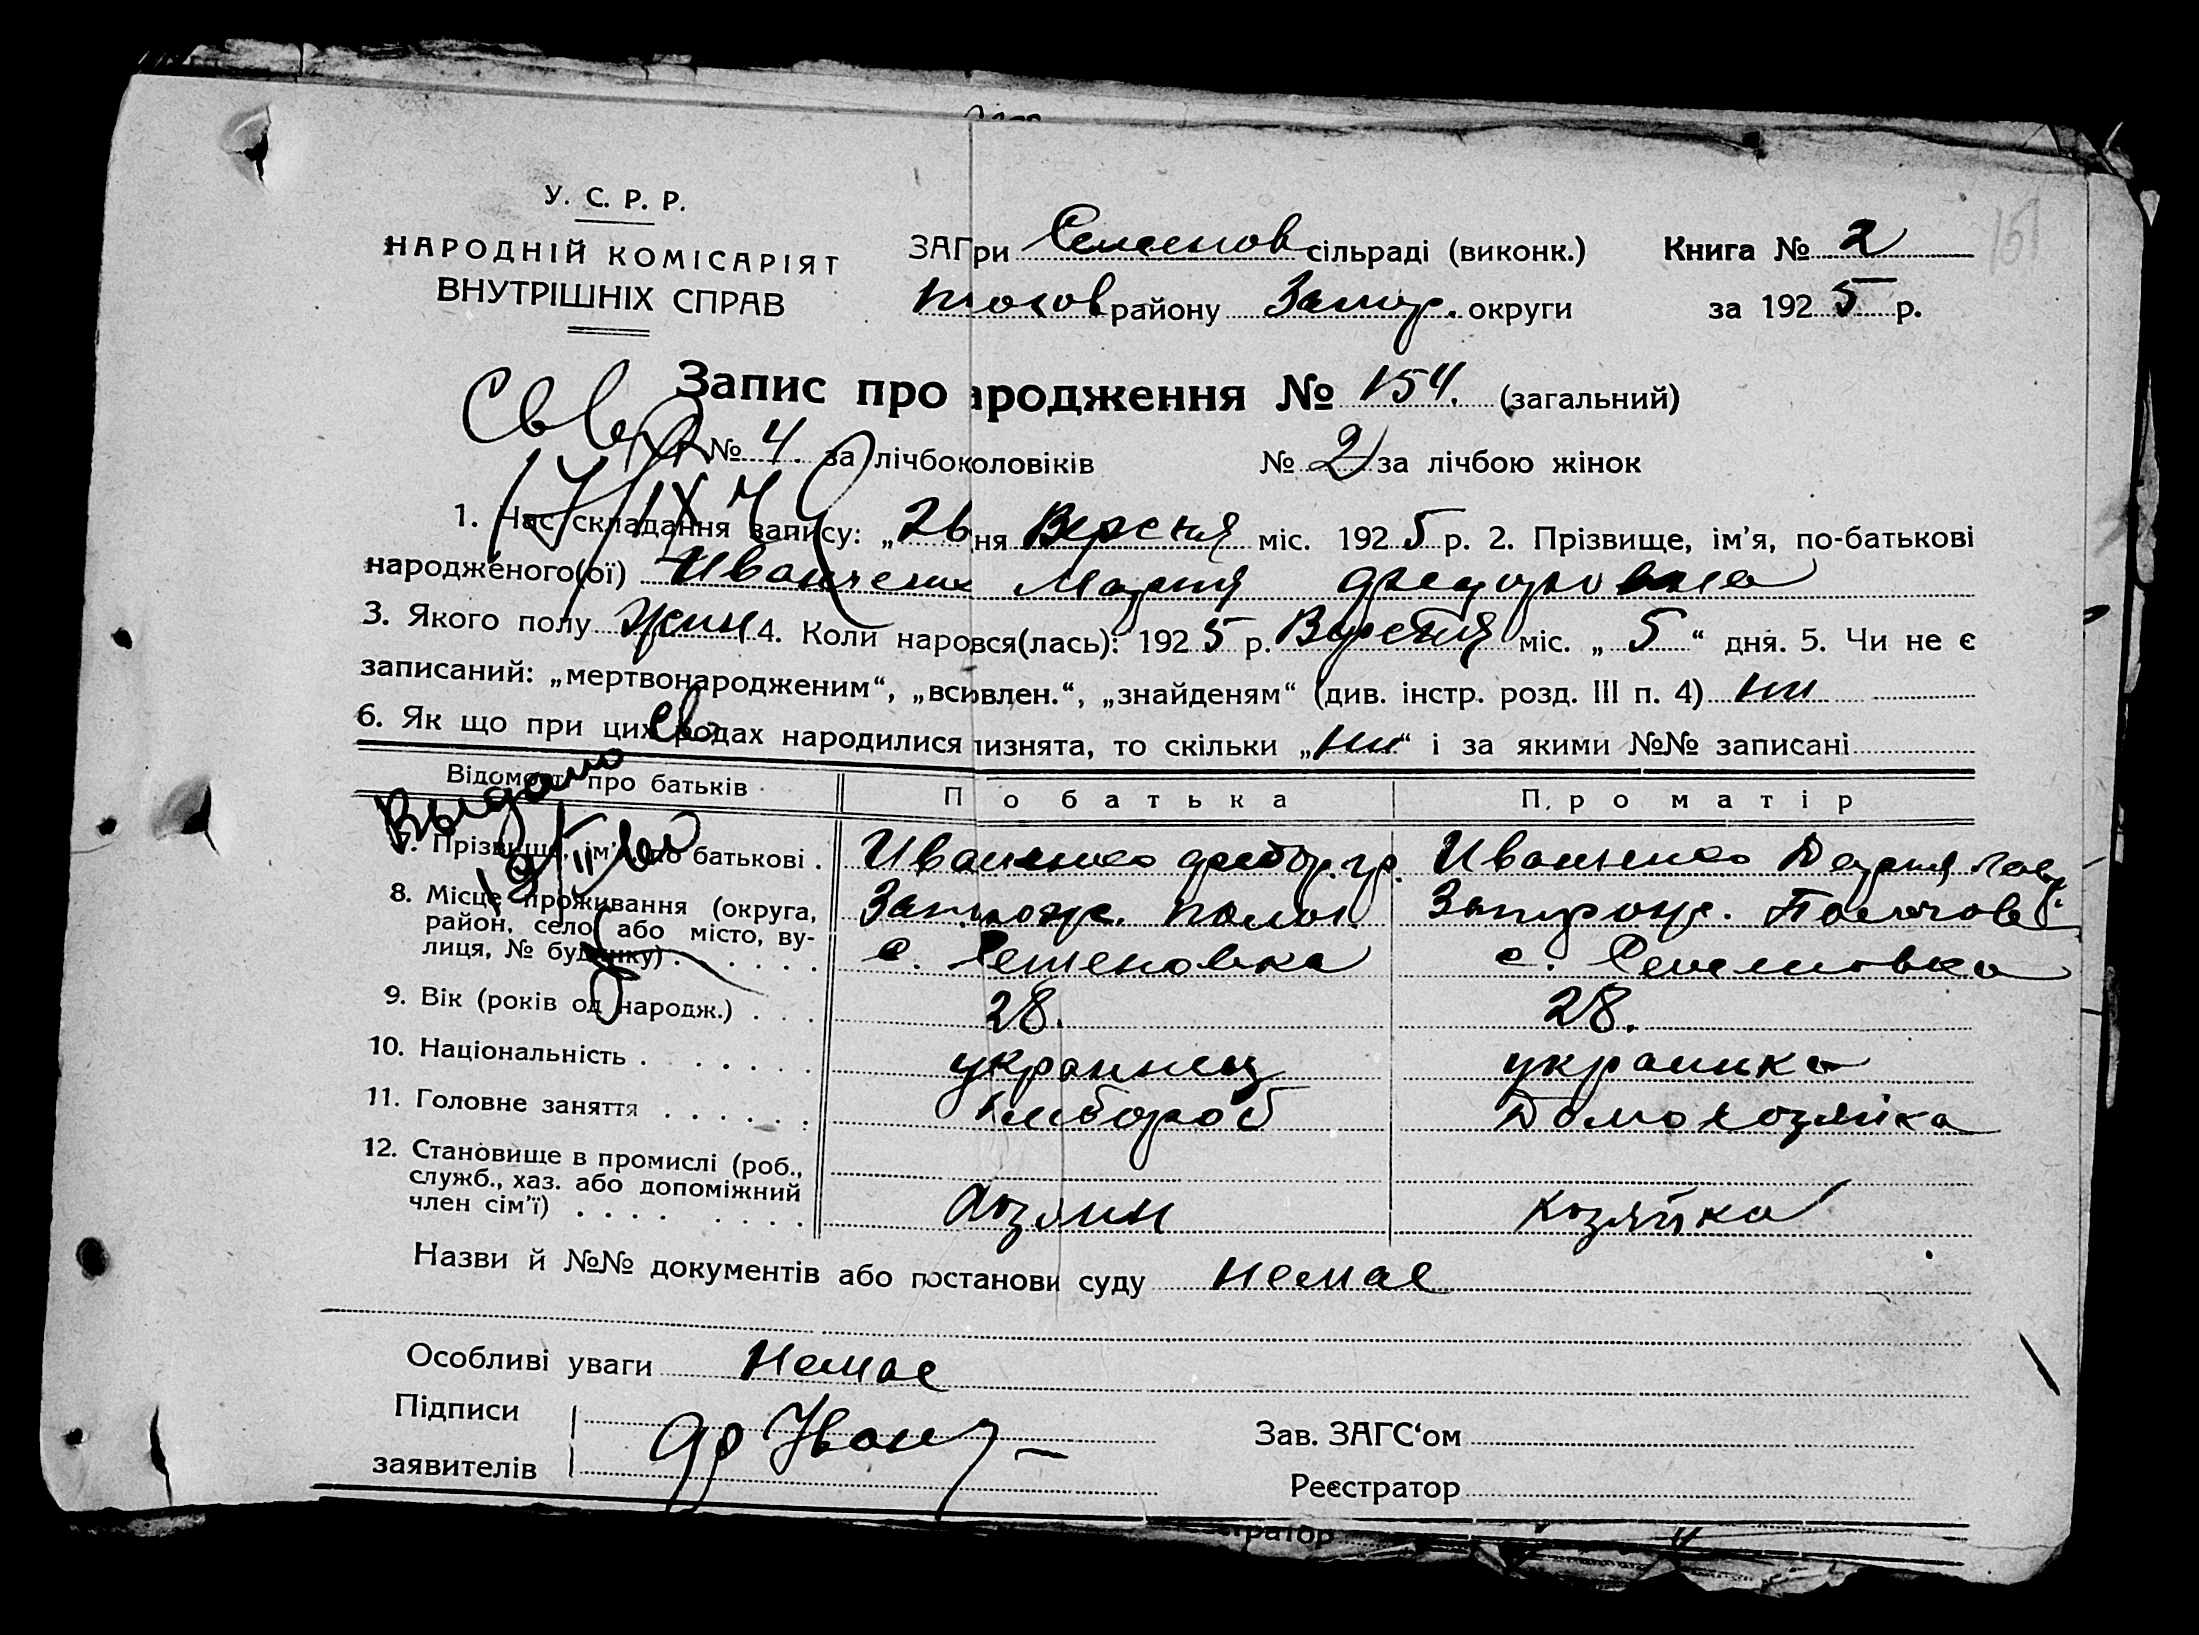 У. С. Р. Р.
НАРОДНІЙ КОМІСАРІЯТ
ВНУТРІШНІХ СПРАВ
ЗАГ ри Семенов сільраді (виконк.) Книга № 2
токов району Запор. округи за 1925 р.
161
Запис про ародження № 154. (загальний)
№ 4. за лічбо оловіків № 2 за лічбою жінок
17/IX 4
1. Час складання запису: „26 ня Версня міс. 1925 р. 2. Прізвище, ім'я, по-батькові
народженого(ої) Иванченко Мария Федоровна
3. Якого полу жин 4. Коли народ вся(лась): 1925 р. Версня міс. „5“ дня. 5. Чи не є
записаний: „мертвонародженим“, „вс влен.“, „знайденям“ (див. інстр. розд. III п. 4) ни
6. Як що при цих родах народилися изнята, то скільки „ни“ і за якими №№ записані
Відомості про батьків П о б а т ь к а П р о м а т і р
Выдано св
7. Прізвище, ім'я, по батькові . Иваненко Федор. гр. Иваненко Дария
8. Місце проживання (округа, Запорож. Полог. Запорож. Пологов
район, село або місто, ву-
лиця, № будинку) . . . . . . с. Семеновка с. Семеновка
9. Вік (років од народж.) . . . 28. 28.
10. Національність . . . . . . . украинец украинка
11. Головне заняття . . . . . . хлебороб Домохозяйка
12. Становище в промислі (роб.,
служб., хаз. або допоміжний
член сім'ї) . . . . . . . . хозяин хозяйка
Назви й №№ документів або постанови суду немае
Особливі уваги Немае
Підписи
заявителів Ф Иван
Зав. ЗАГС'ом
Реєстратор
тратор